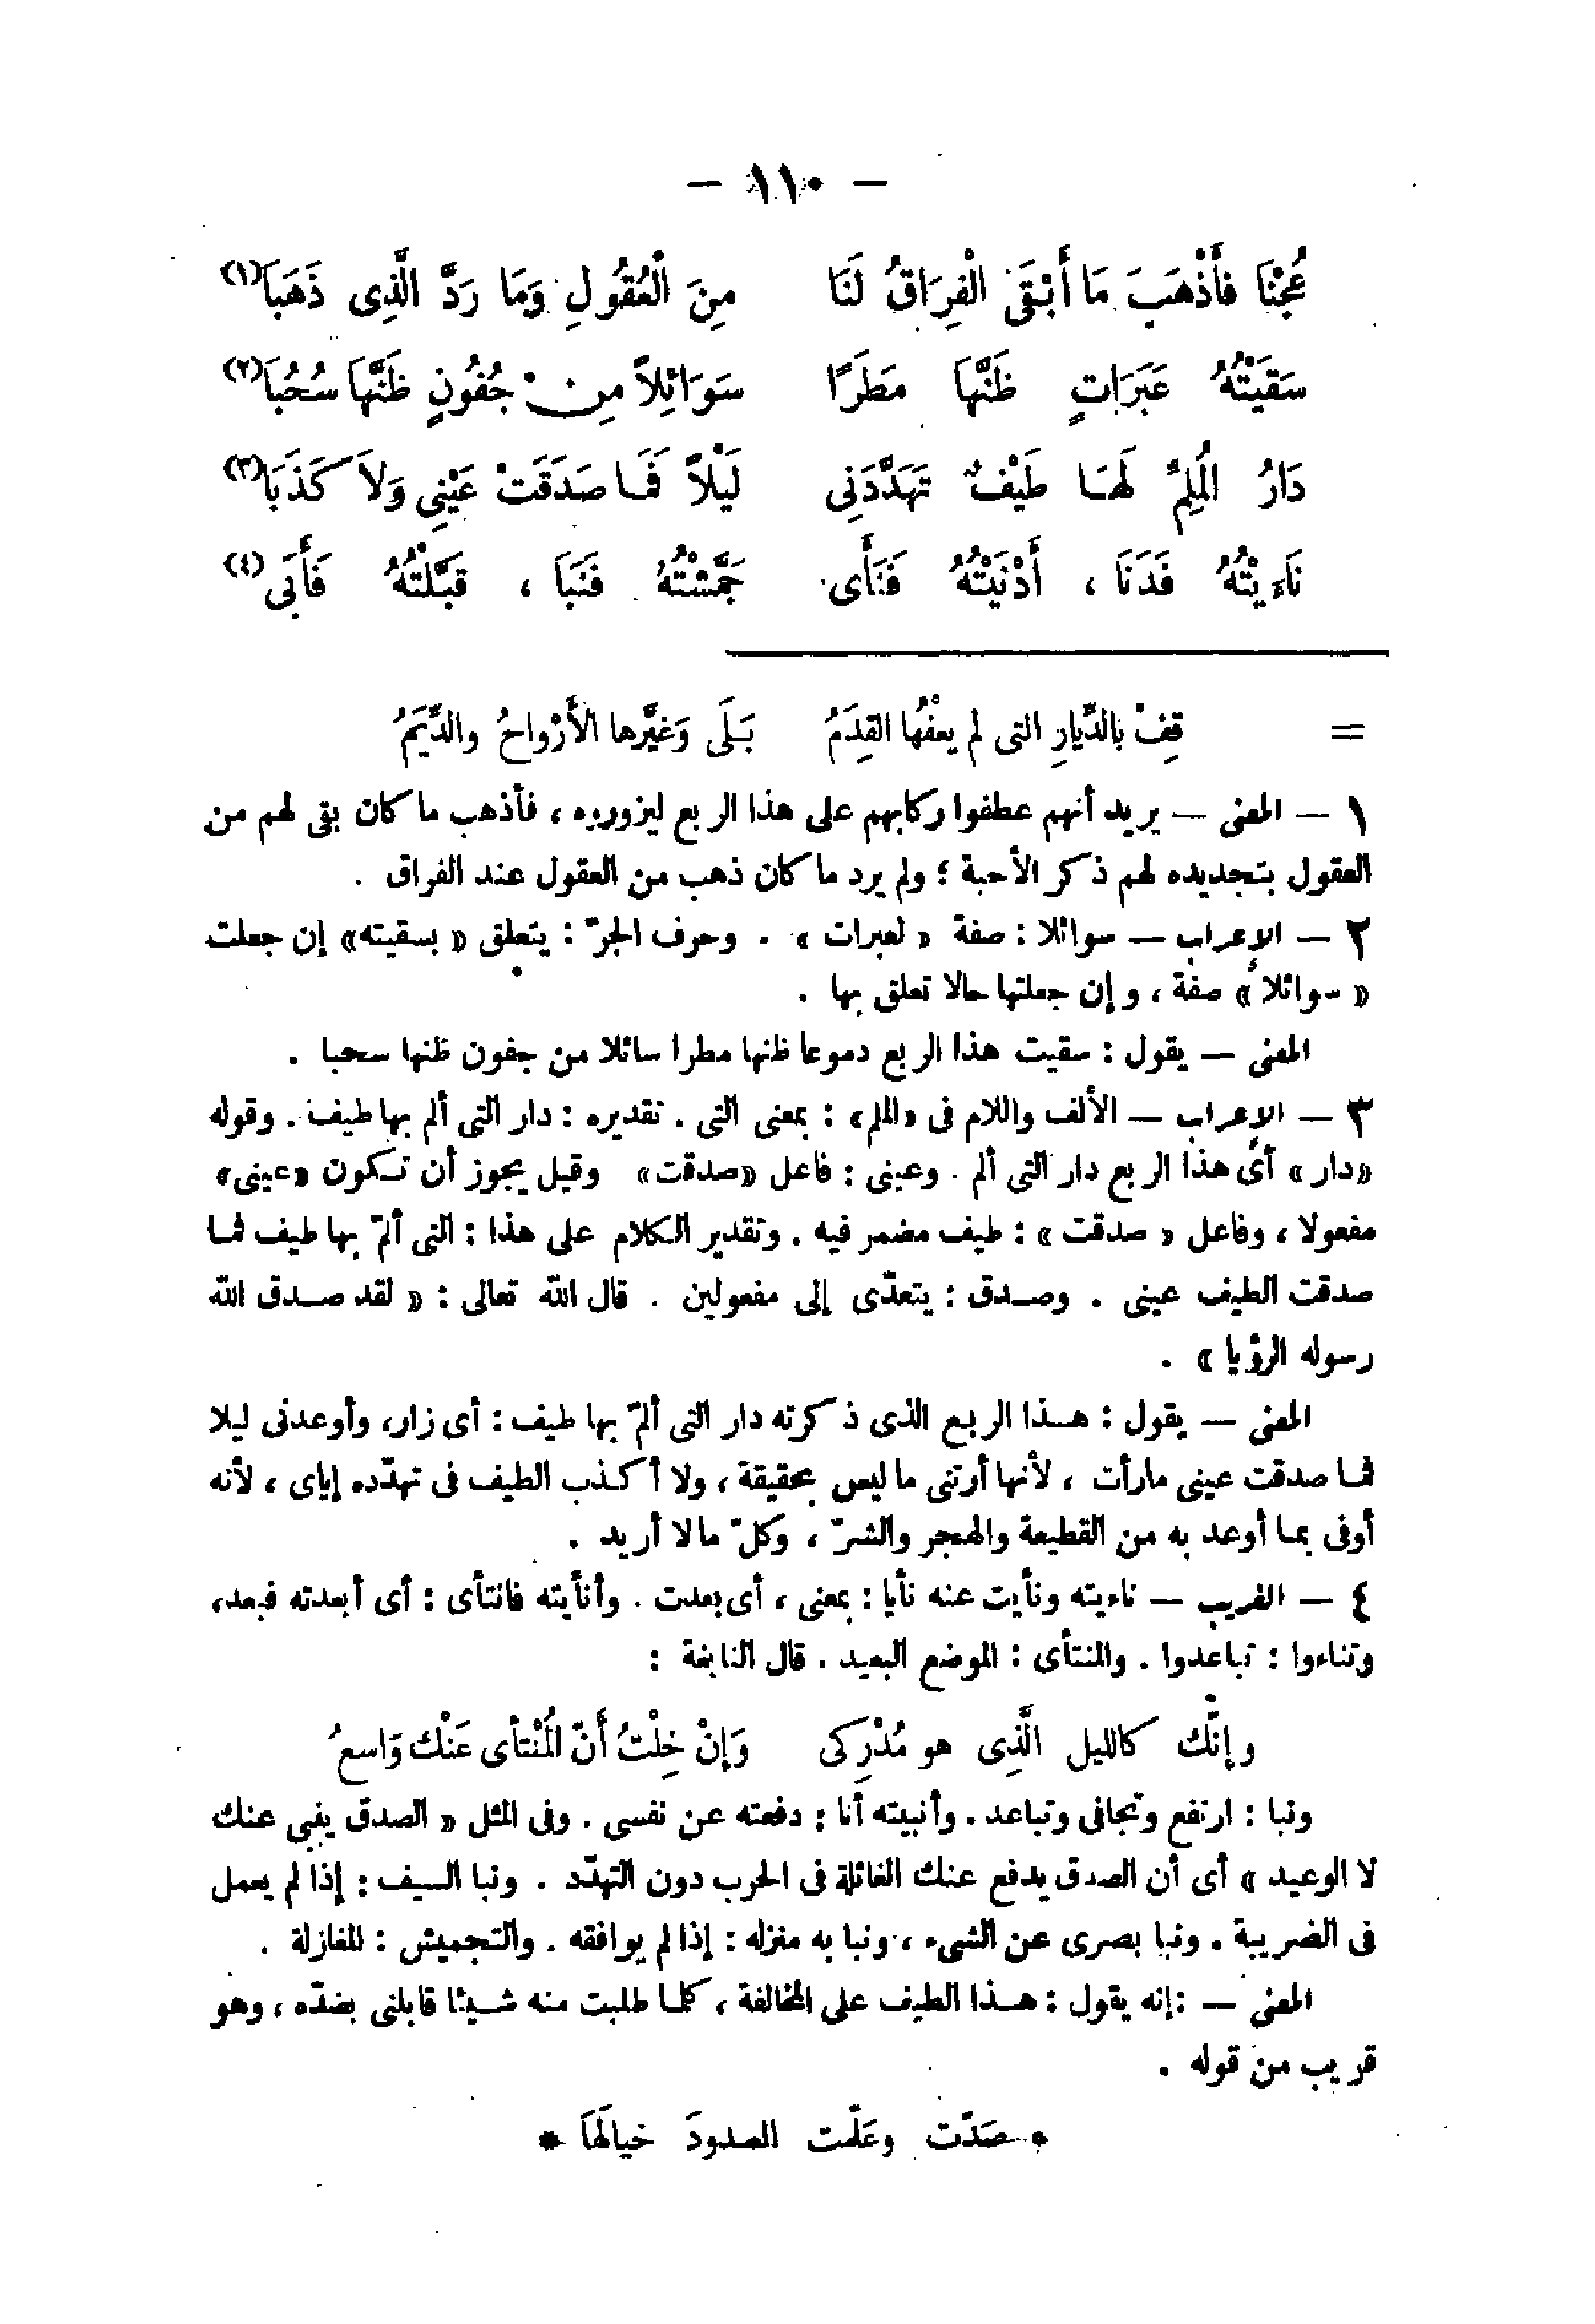 — ١١٠ —
عُجْنَا فَأَذْهَبَ مَا أَبْقَى الْفِرَاقُ لَنَا مِنَ الْعُقُولِ وَمَا رَدَّ الَّذِى ذَهَبَا(١)
سَقَيْتُهُ عَبَرَاتٍ ظَنَّهَا مَطَرًا سَوَائِلاً مِنْ جُفُونٍ ظَنَّهَا سُحُبَا(٢)
دَارُ الْمُلِمِّ لَهَا طَيْفٌ تَهَدَّدَنِى لَيْلاً فَمَا صَدَقَتْ عَيْنِى وَلاَ كَذَبَا(٣)
نَاءَيْتُهُ فَدَنَا ، أَدْنَيْتُهُ فَنَأَى جَمَّشْتُهُ فَنَبَا ، قَبَّلْتُهُ فَأَبَى(٤)
= قِفْ بالدِّيارِ التى لم يعفُها القِدَمُ بَلَى وَغَيَّرها الأَرْواحُ والدِّيَمُ
١ — المعنى — يريد أنهم عطفوا ركابهم على هذا الربع ليزوروه ، فأذهب ما كان بقى لهم من
العقول بتجديده لهم ذكر الأحبة ؛ ولم يرد ما كان ذهب من العقول عند الفراق .
٢ — الإعراب — سوائلا : صفة « لعبرات » . وحرف الجرّ : يتعلق « بسقيته» إن جعلت
« سوائلا » صفة ، وإن جعلتها حالا تعلق بها .
المعنى — يقول : سقيت هذا الربع دموعا ظنها مطرا سائلا من جفون ظنها سحبا .
٣ — الإعراب — الألف واللام فى «الملم» : بمعنى التى . تقديره : دار التى ألم بها طيف . وقوله
«دار » أى هذا الربع دار التى ألم . وعينى : فاعل «صدقت» وقيل يجوز أن تكون «عينى»
مفعولا ، وفاعل « صدقت » : طيف مضمر فيه . وتقدير الكلام على هذا : التى ألمّ بها طيف فما
صدقت الطيف عينى . وصدق : يتعدّى إلى مفعولين . قال الله تعالى : « لقد صدق الله
رسوله الرؤيا » .
المعنى — يقول : هذا الربع الذى ذكرته دار التى ألمّ بها طيف : أى زار، وأوعدنى ليلا
فما صدقت عينى مارأت ، لأنها أرتنى ما ليس بحقيقة ، ولا أكذب الطيف فى تهدّده إياى ، لأنه
أوفى بما أوعد به من القطيعة والهجر والشرّ ، وكلّ مالا أريد .
٤ — الغريب — ناءيته ونأيت عنه نأيا : بمعنى ، أى بعدت . وأنأيته فانتأى : أى أبعدته فبعد،
وتناءوا : تباعدوا . والمنتأى : الموضع البعيد . قال النابغة :
وإنّك كالليل الَّذِى هو مُدْرِكى وَإِنْ خِلْتُ أَنّ المُنْتأى عَنْك وَاسعُ
ونبا : ارتفع وتجافى وتباعد . وأنبيته أنا : دفعته عن نفسى . وفى المثل « الصدق ينبى عنك
لا الوعيد » أى أن الصدق يدفع عنك الغائلة فى الحرب دون التهدّد . ونبا السيف : إذا لم يعمل
فى الضريبة . ونبا بصرى عن الشىء ، ونبا به منزله : إذا لم يوافقه . والتجميش : المغازلة .
المعنى — : إنه يقول : هذا الطيف على المخالفة ، كلما طلبت منه شيئا قابلنى بضدّه ، وهو
قريب من قوله .
* صَدّت وعَلّمت الصدودَ خيالَها *